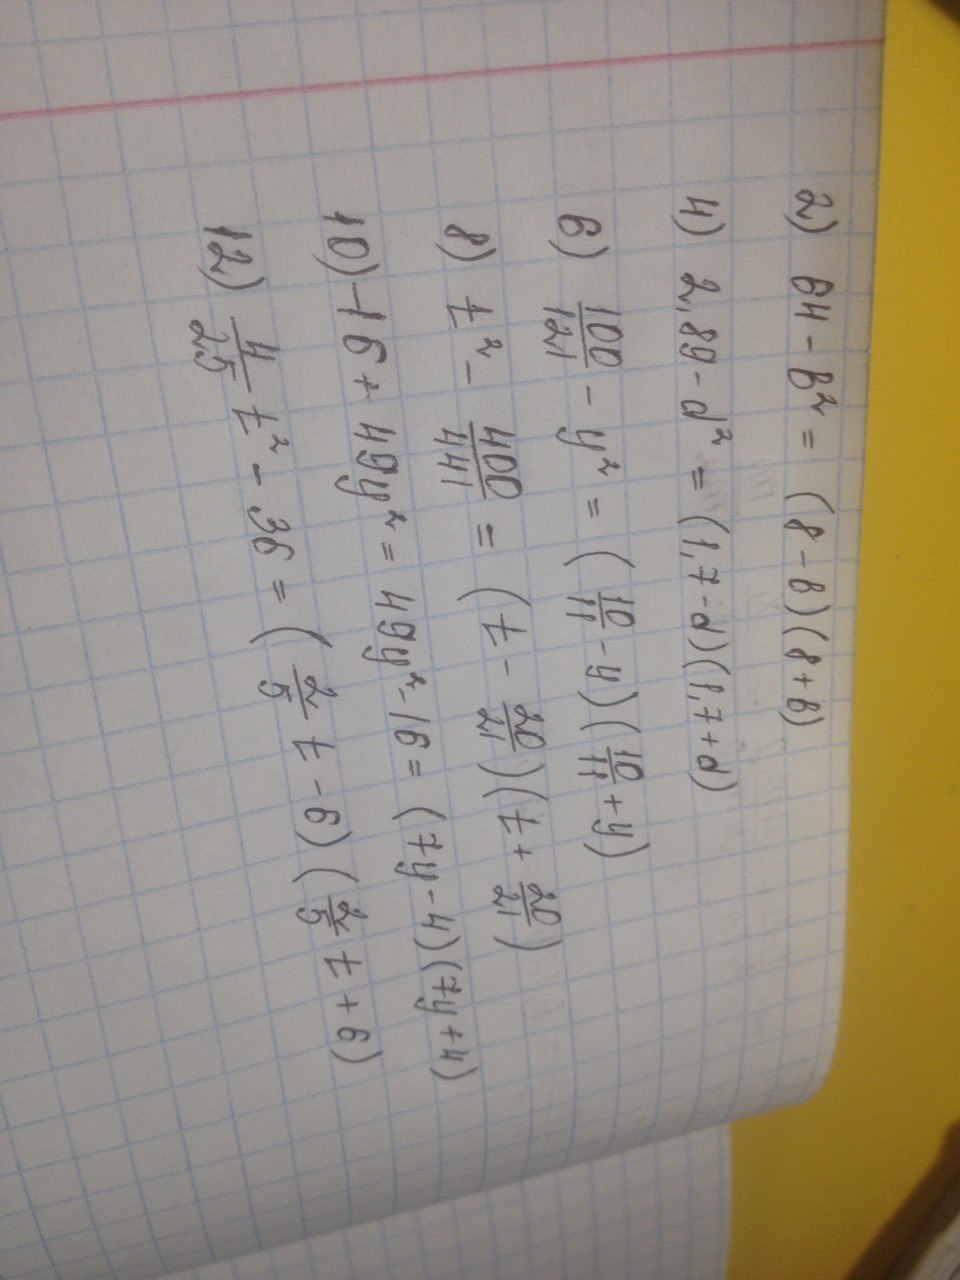 2) 64 - b² = (8 - b)(8 + b)
4) 2,89 - d² = (1,7 - d)(1,7 + d)
6) 100/121 - y² = (10/11 - y)(10/11 + y)
8) t² - 400/441 = (t - 20/21)(t + 20/21)
10) -16 + 49y² = 49y² - 16 = (7y - 4)(7y + 4)
12) 4/25 t² - 36 = (2/5 t - 6)(2/5 t + 6)